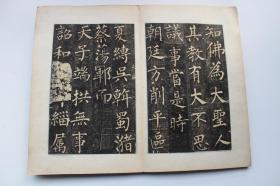 知佛為大聖人
其教有大不思
議事當是時
朝廷方削平區
夏縛吳斡蜀瀦
蔡蕩鄆而
天子端拱無事
詔和緇属